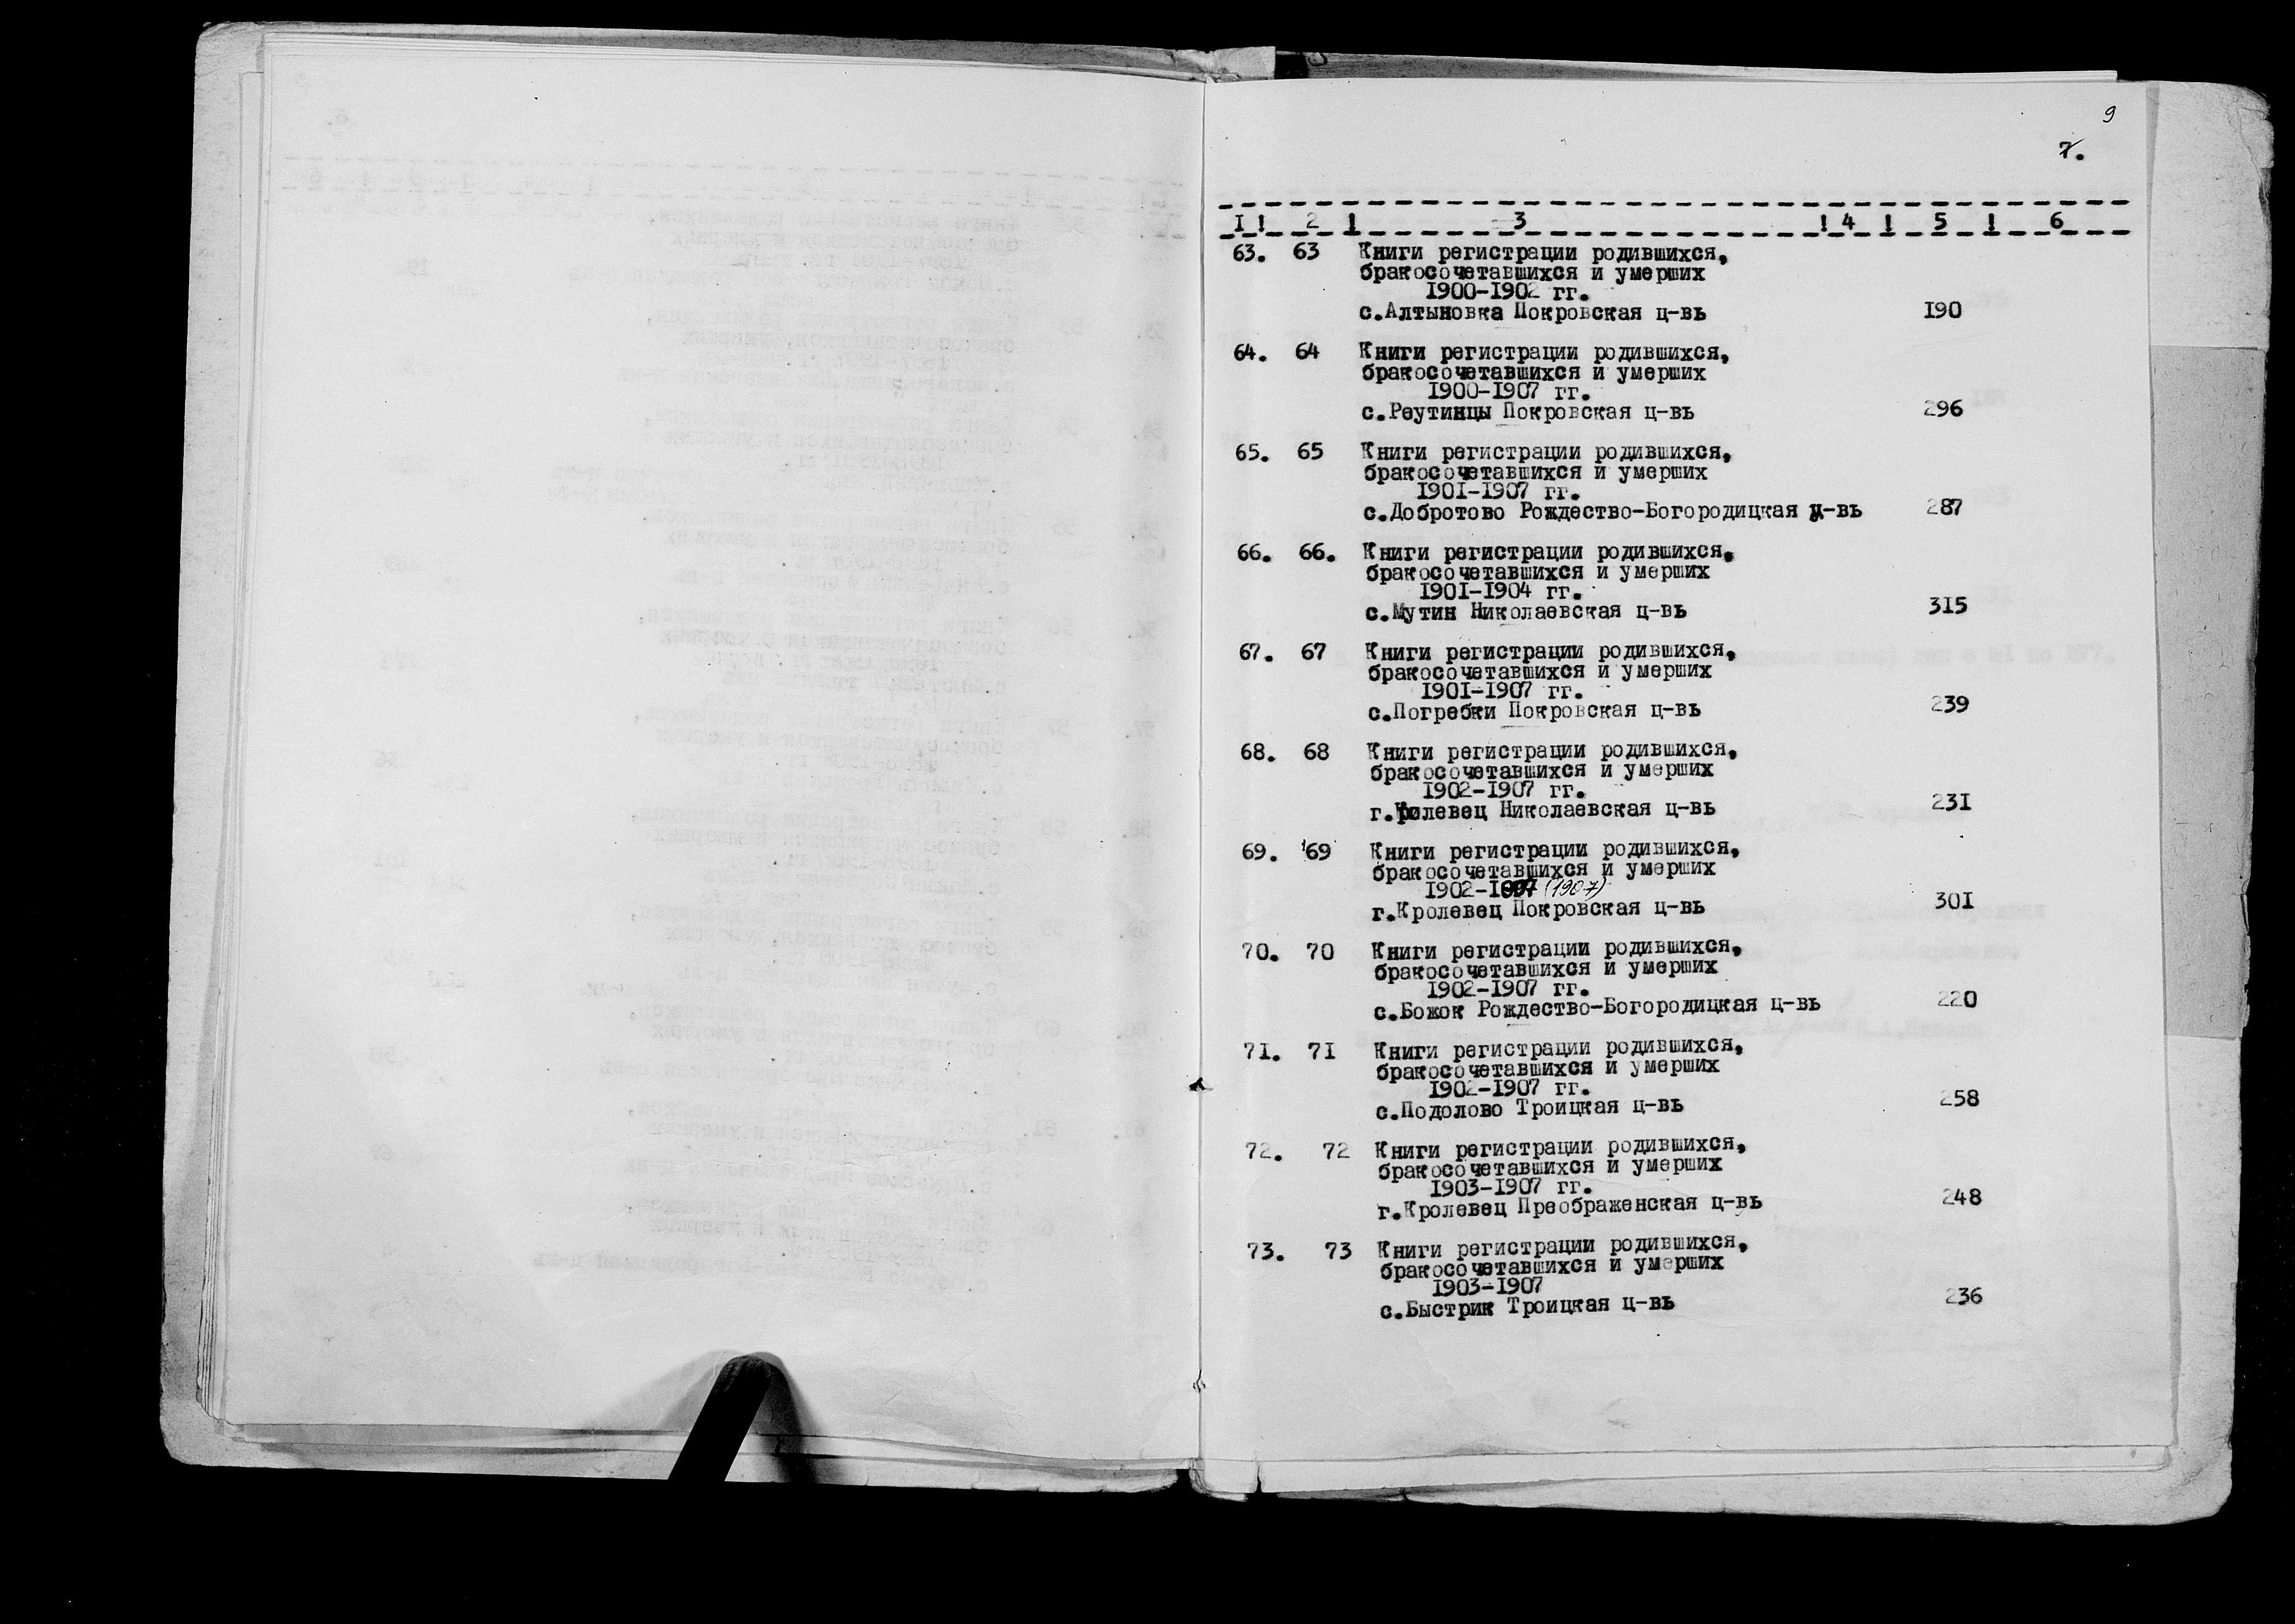 9
7.
I ! 2 ! 3 ! 4 ! 5 ! 6
63. 63 Книги регистрации родившихся,
бракосочетавшихся и умерших
1900-1902 гг.
с.Алтыновка Покровская ц-вь 190
64. 64 Книги регистрации родившихся,
бракосочетавшихся и умерших
1900-1907 гг.
с.Реутинцы Покровская ц-вь 296
65. 65 Книги регистрации родившихся,
бракосочетавшихся и умерших
1901-1907 гг.
с.Добротово Рождество-Богородицкая ц-вь 287
66. 66. Книги регистрации родившихся,
бракосочетавшихся и умерших
1901-1904 гг.
с.Мутин Николаевская ц-вь 315
67. 67 Книги регистрации родившихся,
бракосочетавшихся и умерших
1901-1907 гг.
с.Погребки Покровская ц-вь 239
68. 68 Книги регистрации родившихся,
бракосочетавшихся и умерших
1902-1907 гг.
г.Кролевец Николаевская ц-вь 231
69. 69 Книги регистрации родившихся,
бракосочетавшихся и умерших
1902-1907 (1907)
г.Кролевец Покровская ц-вь 301
70. 70 Книги регистрации родившихся,
бракосочетавшихся и умерших
1902-1907 гг.
с.Божок Рождество-Богородицкая ц-вь 220
71. 71 Книги регистрации родившихся,
бракосочетавшихся и умерших
1902-1907 гг.
с.Подолово Троицкая ц-вь 258
72. 72 Книги регистрации родившихся,
бракосочетавшихся и умерших
1903-1907 гг.
г.Кролевец Преображенская ц-вь 248
73. 73 Книги регистрации родившихся,
бракосочетавшихся и умерших
1903-1907
с.Быстрик Троицкая ц-вь 236